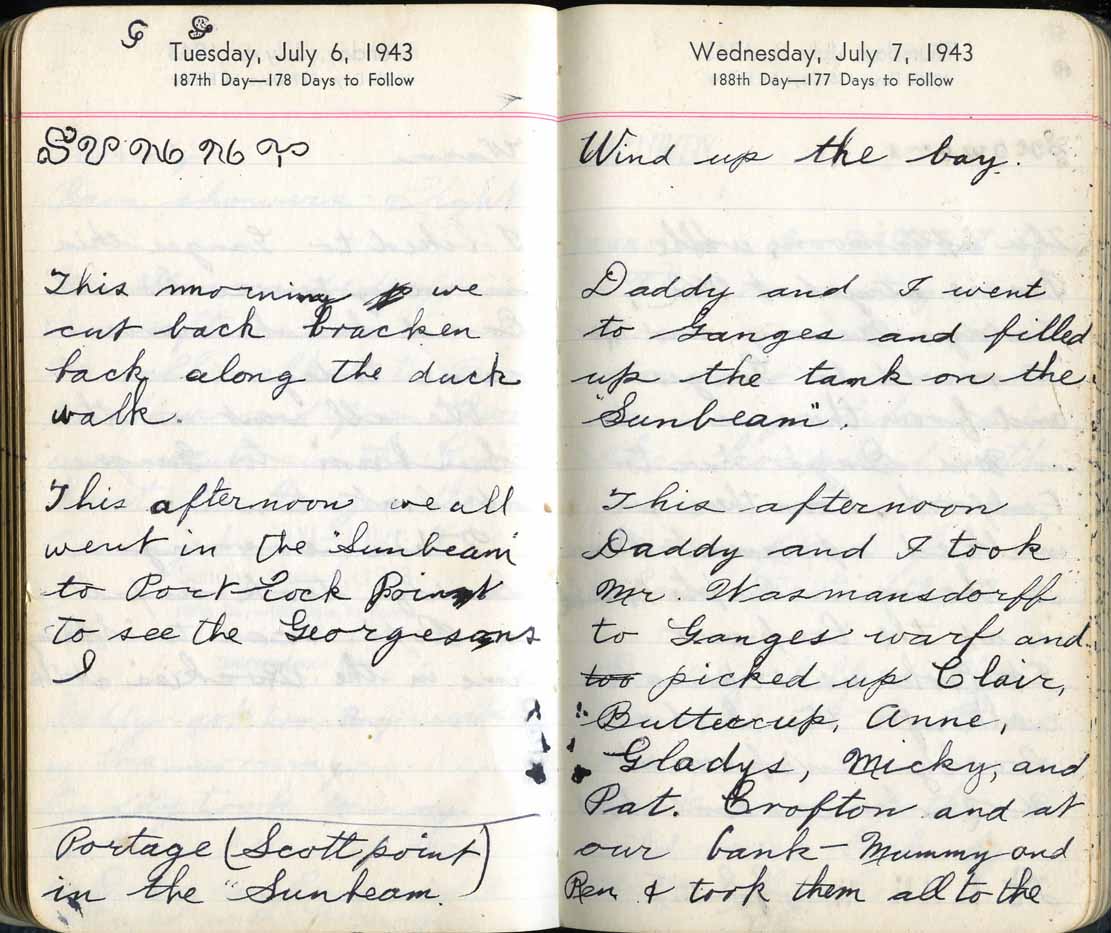 Tuesday, July 6, 1943
187th Day—178 Days to Follow
This morning we
cut back bracken
back along the duck
walk.
This afternoon we all
went in the "Sunbeam"
to Port Lock Point
to see the Georgesons
I
Portage (Scott point)
in the "Sunbeam.
Wednesday, July 7, 1943
188th Day—177 Days to Follow
Wind up the bay.
Daddy and I went
to Ganges and filled
up the tank on the
"Sunbeam".
This afternoon
Daddy and I took
Mr. Wasmansdorff
to Ganges warf and
too picked up Clair,
Buttercup, Anne,
Gladys, Micky, and
Pat. Crofton and at
our bank - Mummy and
& took them all to the